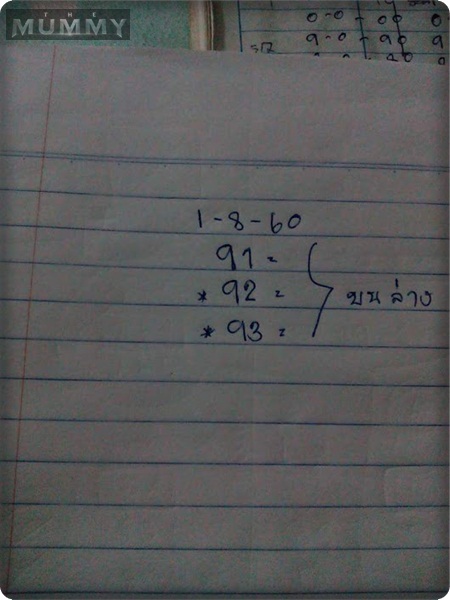 THE
MUMMY
0-0-00 0
9-0-90 9
1-8-60
91 =
* 92 =
* 93 =
บน ล่าง